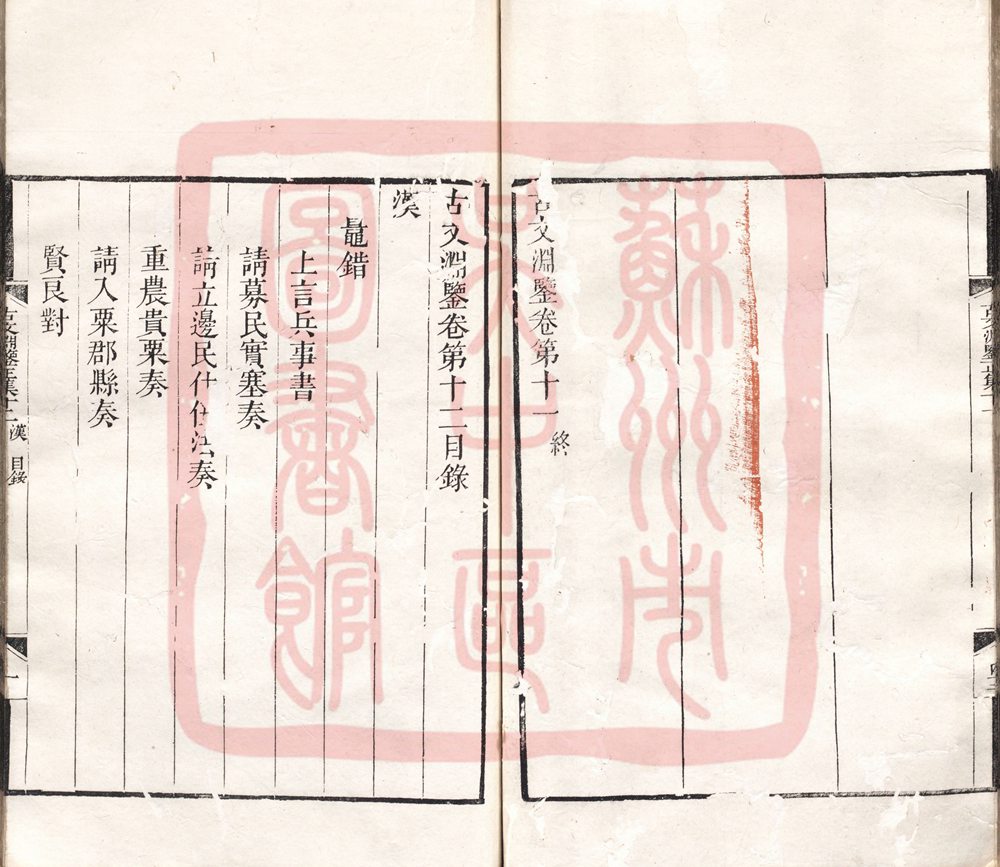 古文淵鑒卷第十一 終
古文淵鑒卷第十二目錄
漢
鼂錯
上言兵事書
請募民實塞奏
請立邊民什伍法奏
重農貴粟奏
請入粟郡縣奏
賢良對
古文淵鑒正集十二 漢 目錄
一
蘇州市
吳中區
圖書館